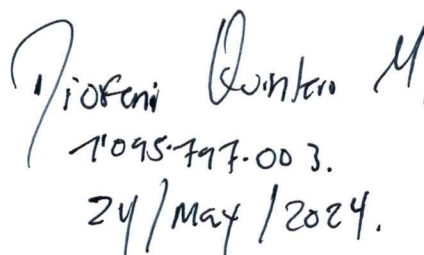 Diofeni Quintero M
1'095.797.003.
24/May/2024.